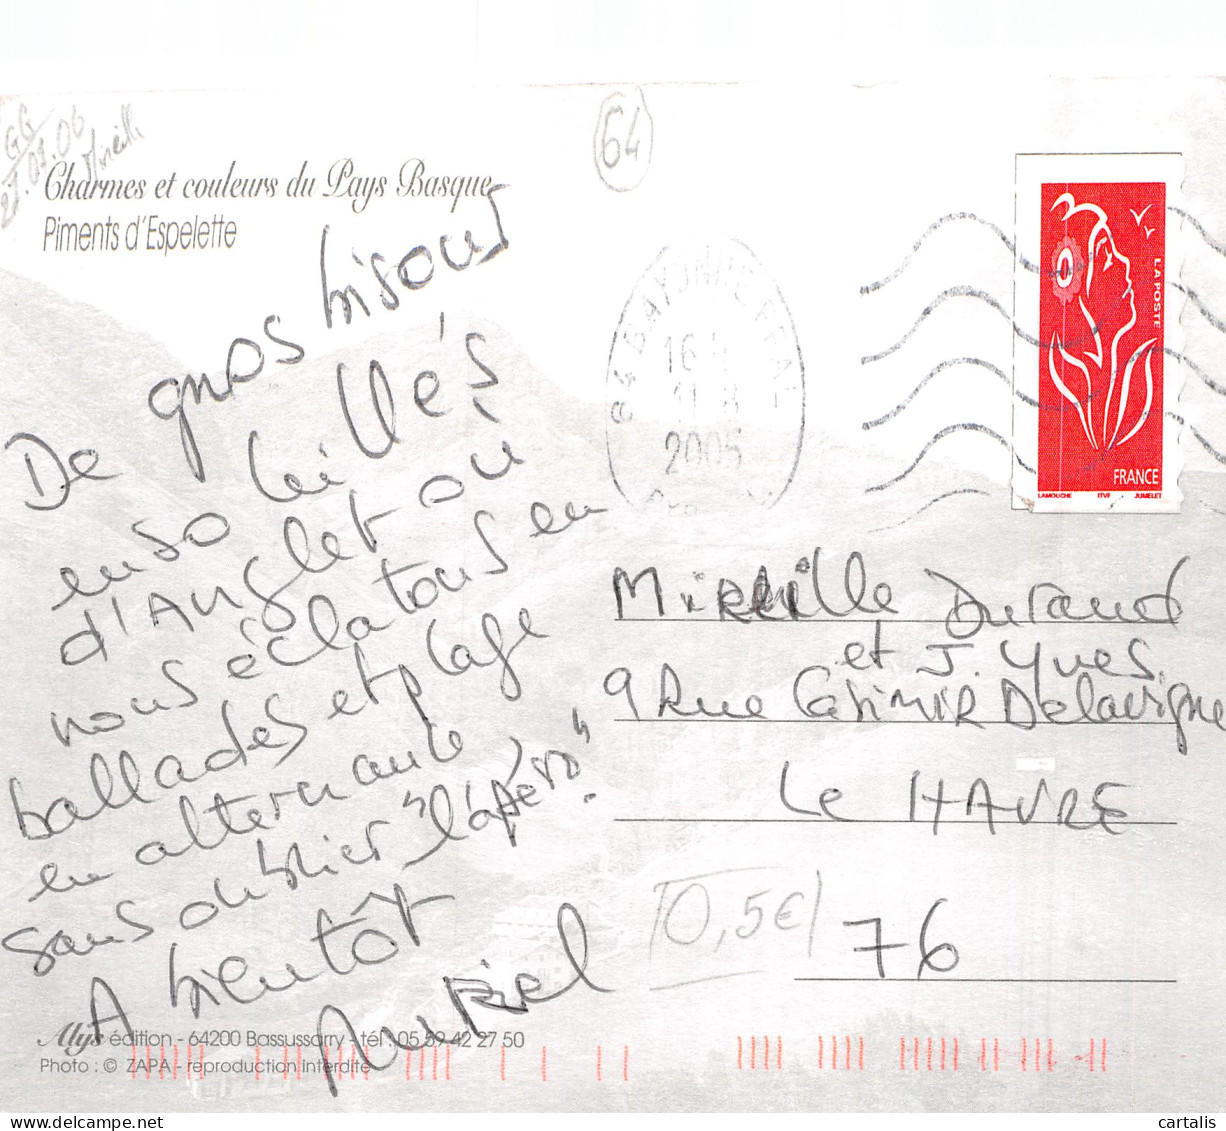 GG
27.08.06
Mireille
64
Charmes et couleurs du Pays Basque
Piments d'Espelette
De gros bisous
ensoleillés
d'Anglet où
nous éclatons en
ballades et plage
en alternance
sans oublier "l'apéro".
A bientôt
Muriel
Alys édition - 64200 Bassussarry - tél : 05 59 42 27 50
Photo : © ZAPA - reproduction interdite
64 BAYONNE PPAL
16 H
11 8
2005
LA POSTE
FRANCE
LAMOUCHE ITVF JUMELET
Mireille Durand
et J. Yves
9 Rue Casimir Delavigne
Le HAVRE
0,5€
76
cartalis